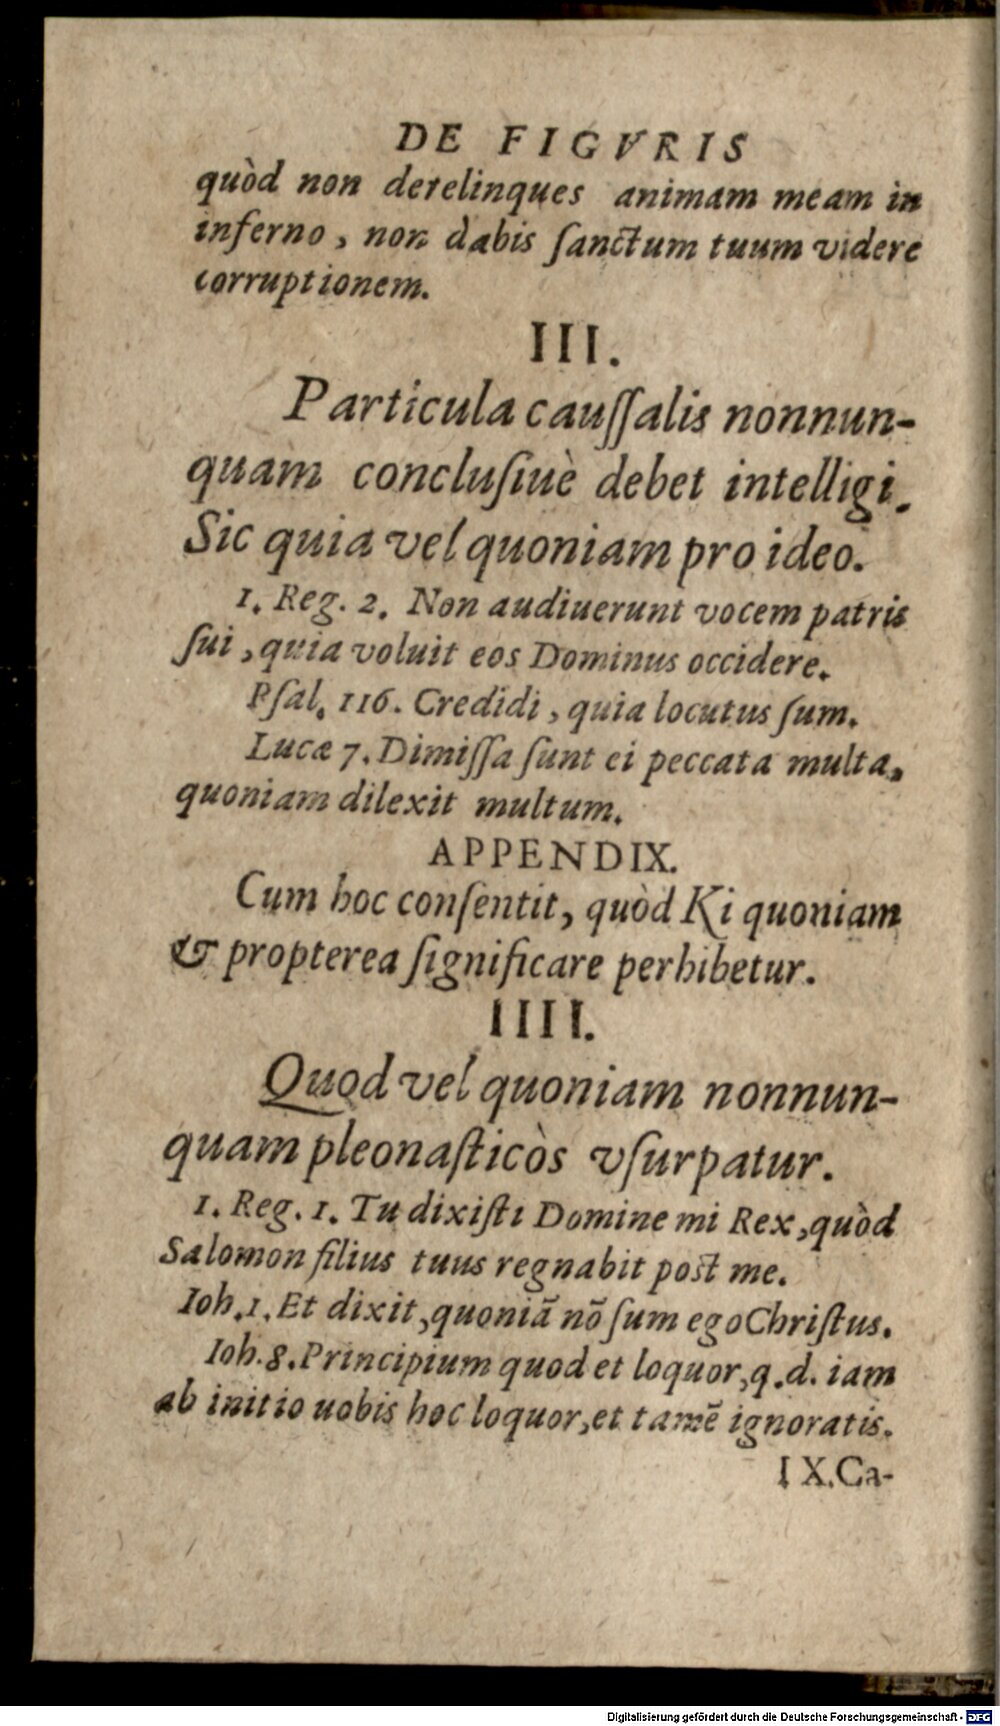 DE FIGVRIS
quòd non derelinques animam meam in
inferno, non dabis ſanctum tuum videre
corruptionem.
III.
Particula cauſſalis nonnun-
quam concluſiuè debet intelligi.
Sic quia vel quoniam pro ideo.
1. Reg. 2. Non audiuerunt vocem patris
ſui, quia voluit eos Dominus occidere.
Pſal. 116. Credidi, quia locutus ſum.
Lucæ 7. Dimiſſa ſunt ei peccata multa,
quoniam dilexit multum.
APPENDIX.
Cum hoc conſentit, quòd Ki quoniam
& propterea ſignificare perhibetur.
IIII.
Quod vel quoniam nonnun-
quam pleonaſticòs vſurpatur.
1. Reg. 1. Tu dixiſti Domine mi Rex, quòd
Salomon filius tuus regnabit post me.
Ioh. 1. Et dixit, quoniã nõ ſum ego Chriſtus.
Ioh. 8. Principium quod et loquor, q. d. iam
ab initio uobis hoc loquor, et tamẽ ignoratis.
IX. Ca-
Digitalisierung gefördert durch die Deutsche Forschungsgemeinschaft - DFG